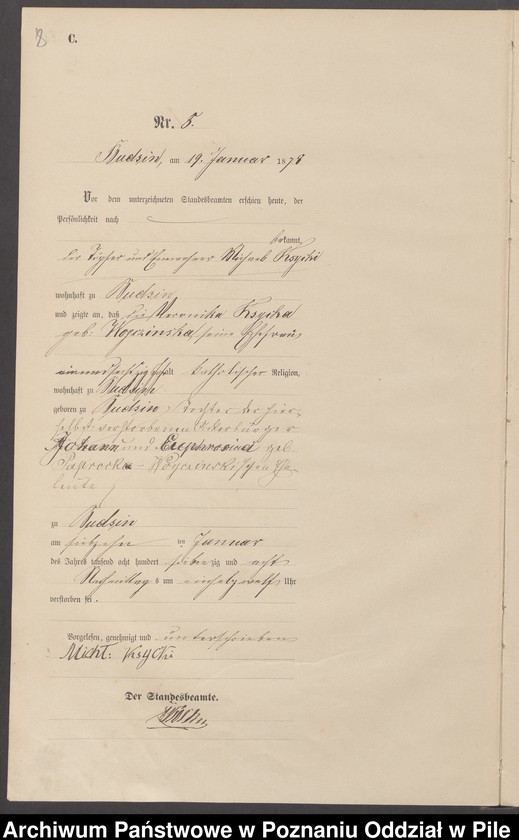 8
C.
Nr. 5.
Budsin, am 19. Januar 1878
Vor dem unterzeichneten Standesbeamten erschien heute, der
Persönlichkeit nach
bekannt,
der Töpfer und Einwohner Michael Ksycki
wohnhaft zu Budsin
und zeigte an, daß die Veronika Ksycka
geb: seine Ehefrau
alt katholischer Religion,
wohnhaft zu Budsin
geboren zu Budsin, Tochter der hier-
selbst verstorbenen Ackerbürger
Johann und Euphrosina geb.
Paprocka - Ehe-
leute
zu Budsin
am siebzehn ten Januar
des Jahres tausend acht hundert siebenzig und acht
Nachmittags um Uhr
verstorben sei.
Vorgelesen, genehmigt und unterschrieben
Mich: Ksycki
Der Standesbeamte.
Archiwum Państwowe w Poznaniu Oddział w Pile